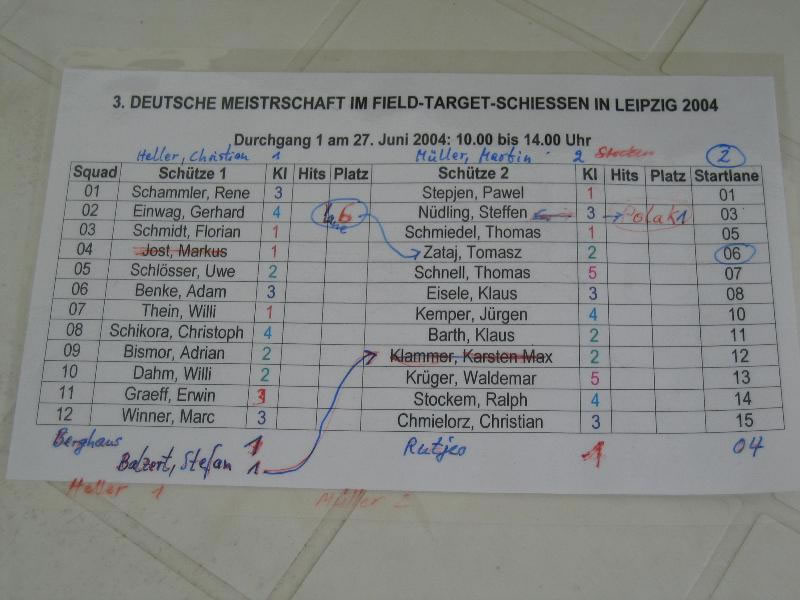 3. DEUTSCHE MEISTRSCHAFT IM FIELD-TARGET-SCHIESSEN IN LEIPZIG 2004
Durchgang 1 am 27. Juni 2004: 10.00 bis 14.00 Uhr
Heller, Christian 1 Müller, Martin 2 2
Squad Schütze 1 Kl Hits Platz Schütze 2 Kl Hits Platz Startlane
01 Schammler, Rene 3 Stepjen, Pawel 1 01
02 Einwag, Gerhard 4 6 Nüdling, Steffen 3 Polak 1 03
03 Schmidt, Florian 1 Schmiedel, Thomas 1 05
04 Jost, Markus 1 Zataj, Tomasz 2 06
05 Schlösser, Uwe 2 Schnell, Thomas 5 07
06 Benke, Adam 3 Eisele, Klaus 3 08
07 Thein, Willi 1 Kemper, Jürgen 4 10
08 Schikora, Christoph 4 Barth, Klaus 2 11
09 Bismor, Adrian 2 Klammer, Karsten Max 2 12
10 Dahm, Willi 2 Krüger, Waldemar 5 13
11 Graeff, Erwin 3 Stockem, Ralph 4 14
12 Winner, Marc 3 Chmielorz, Christian 3 15
Berghaus 1 Rutjes 1 04
Balzert, Stefan 1
Heller 1 Müller 2